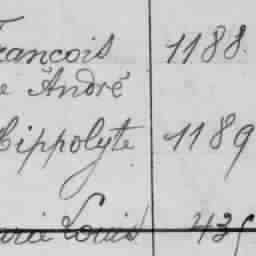 François 1188.
e André
Hippolyte 1189
Marie Louis 435